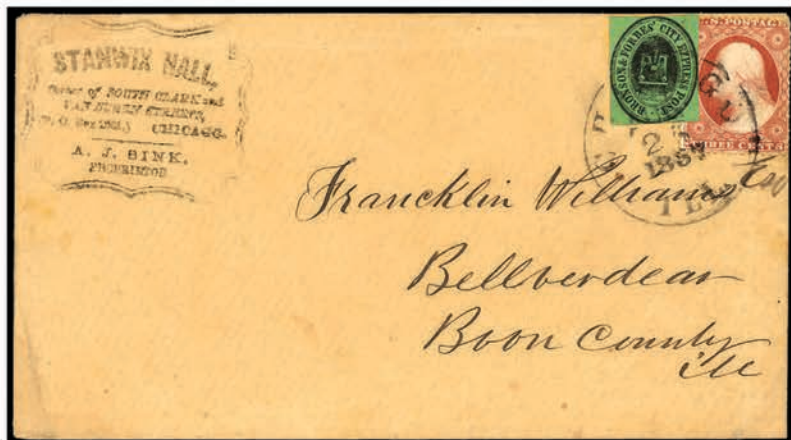 STANWIX HALL,
Corner of SOUTH CLARK and
VAN BUREN STREETS,
CHICAGO.
A. J. SINK.
PROPRIETOR
BRONSON & FORBES' CITY EXPRESS POST.
POSTAGE
CENTS
2
185
ILL
Francklin Williams
Bellverdear
Boon County
ile